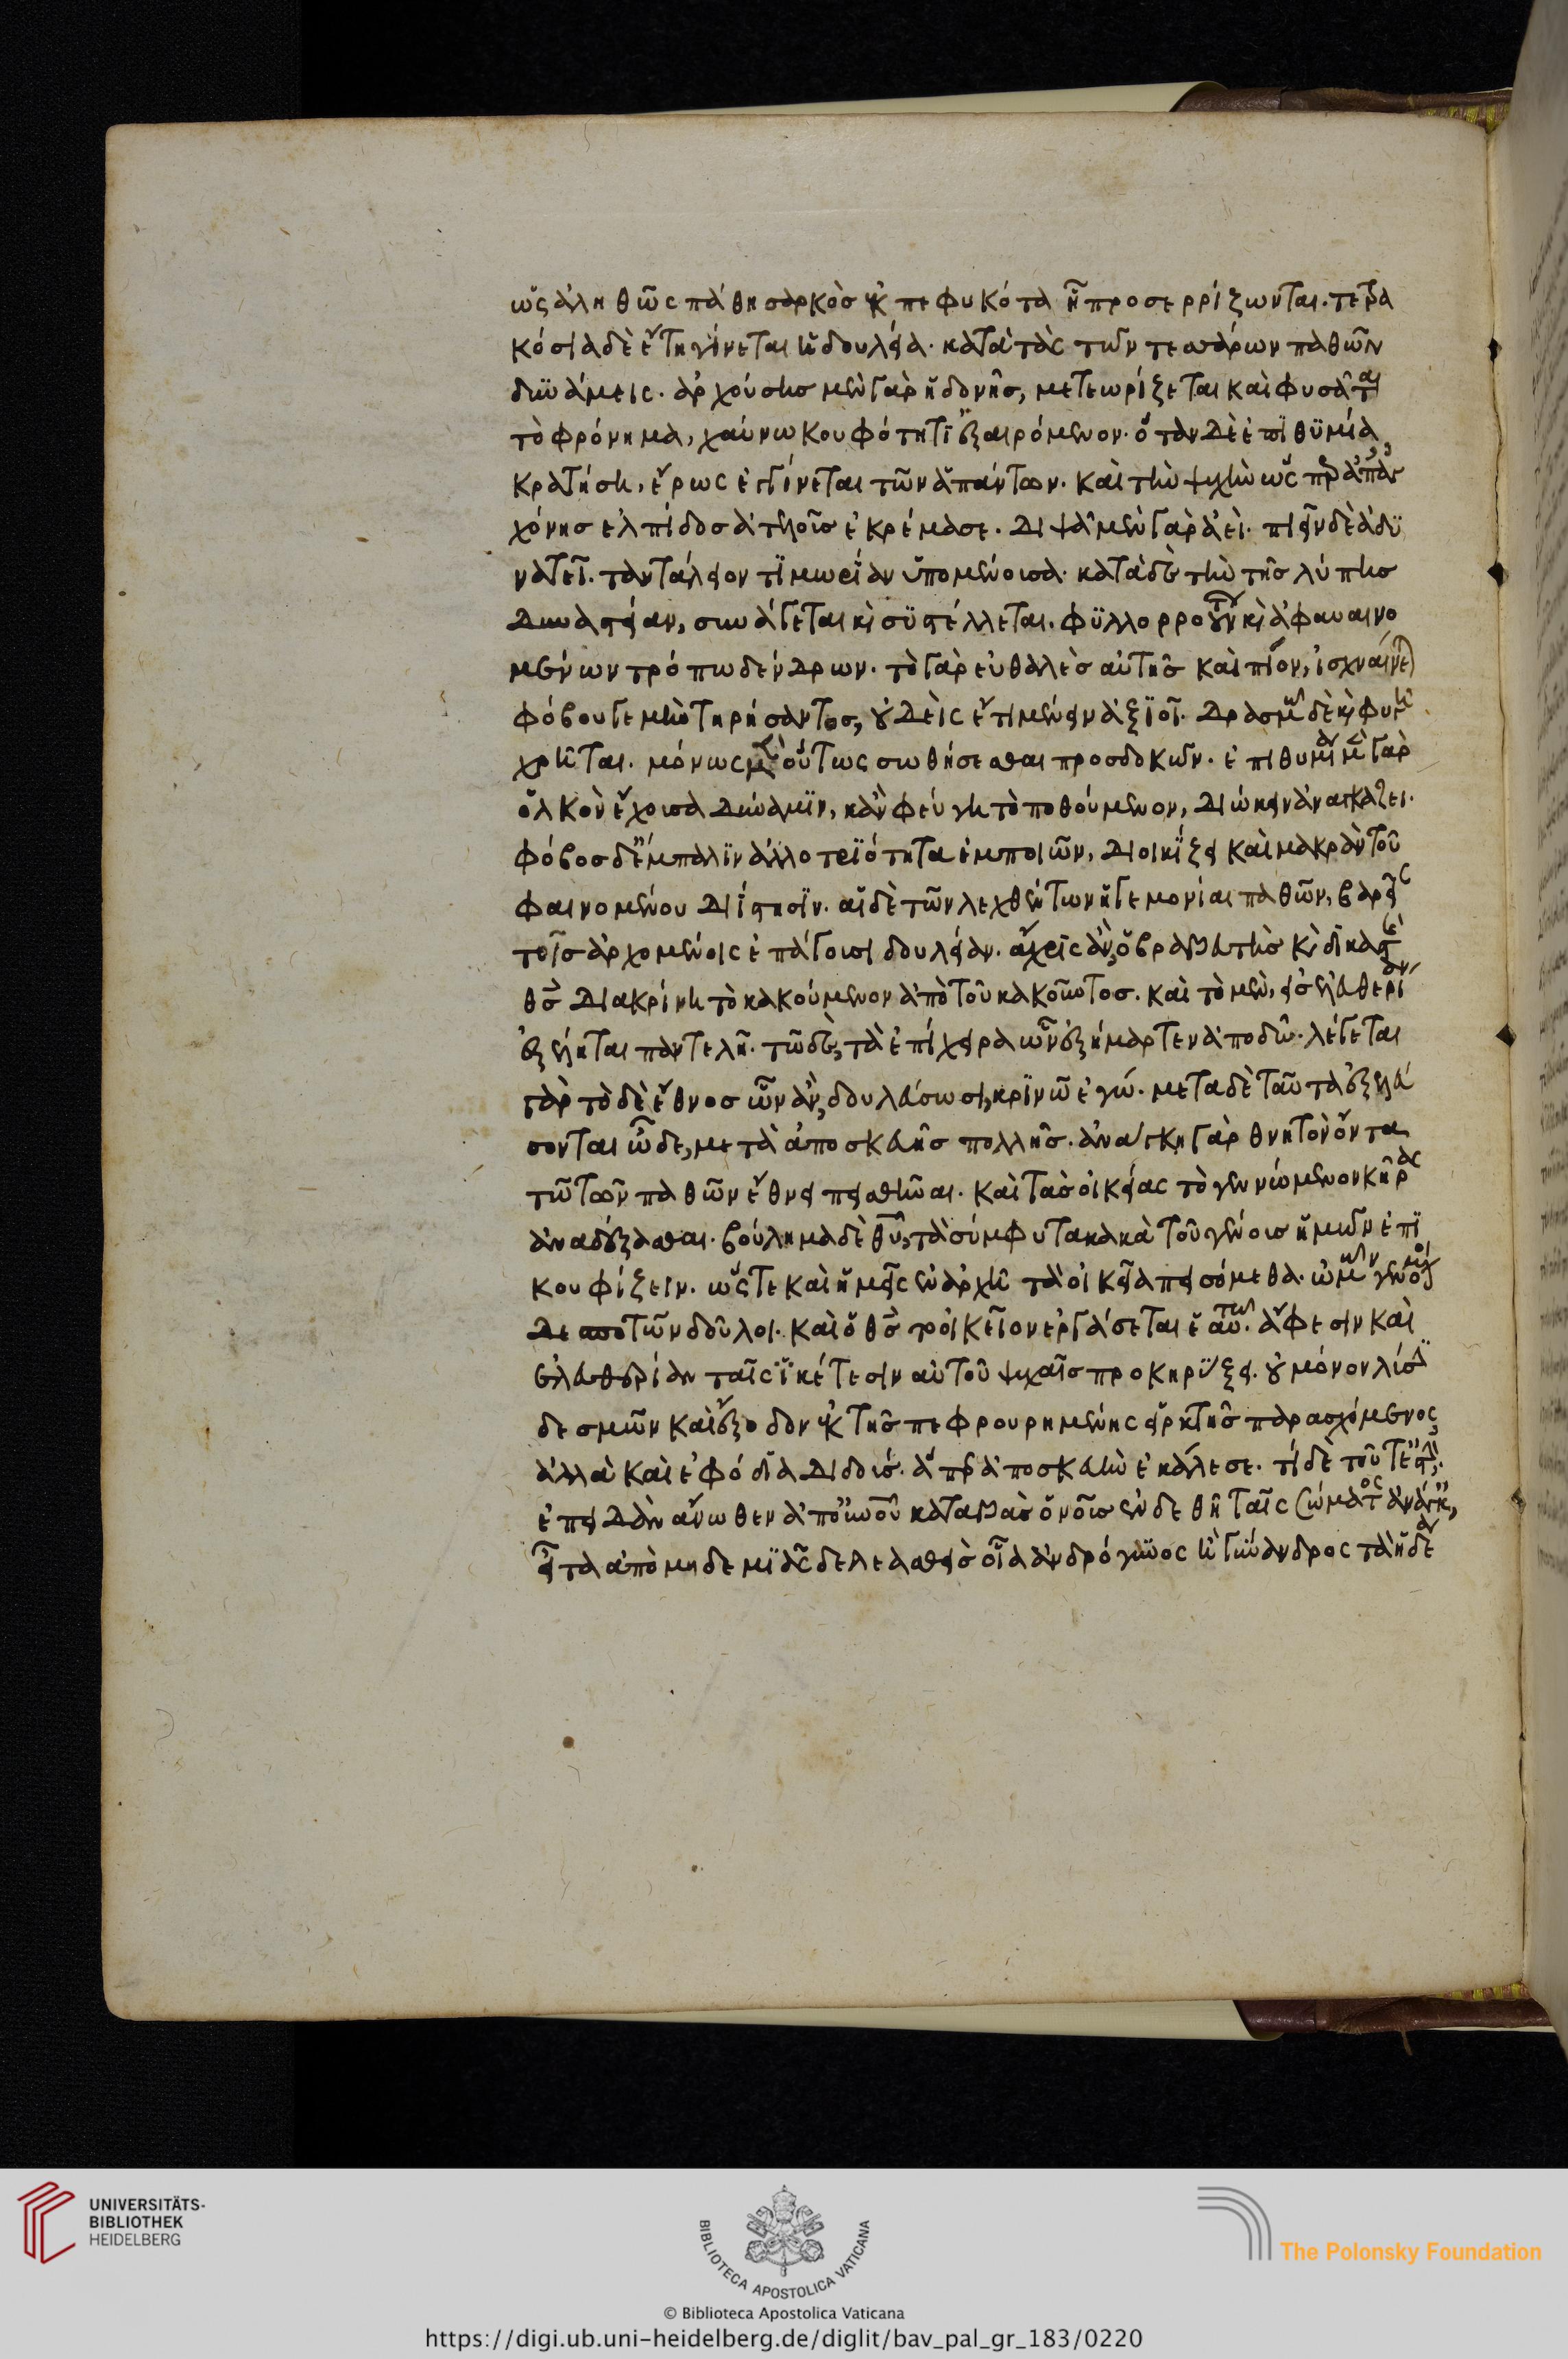 ὡς ἀληθῶς πάθη σαρκὸς ἐκπεφυκότα ἧ προσερρίζωνται. τετρα
κόσια δὲ ἔτη γίνεται ἡ δουλεία. κατὰ τὰς τῶν τεσσάρων παθῶν
δυνάμεις. ἀρχούσης μὲν γὰρ ἡδονῆς, μετεωρίζεται καὶ φυσᾶται
τὸ φρόνημα, χαύνω κουφότητι ἐξαιρόμενον. ὅταν δὲ ἐπιθυμία,
κρατήση, ἔρως ἐγγίνεται τῶν ἁπάντων. καὶ τὴν ψυχὴν ὥσπερ ἀπ' ἀγ
χόνης ἐλπίδος ἀτελοῦς ἐκρέμασε. διψᾶ μὲν γὰρ ἀεὶ. πιεῖν δὲ ἀδυ
νατεῖ. ταντάλειον τιμωρίαν ὑπομένουσα. κατὰ δὲ τὴν τῆς λύπης
δυναστείαν, συνάγεται καὶ συστέλλεται. φυλλορροούντων καὶ ἀφαυαινο
μένων τρόπω δένδρων. τὸ γὰρ εὐθαλὲς αὐτῆς καὶ πῖον, ἰσχναίνεται
φόβου γε μὴν τηρήσαντος, οὐδεὶς ἔτι μένειν ἀξιοῖ. δρασμῶ δὲ καὶ φυγῆ
χρῆται. μόνως οὕτως σωθήσεσθαι προσδοκῶν. ἐπιθυμία μὲν γὰρ
ὁλκὸν ἔχουσα δύναμιν, κἂν φεύγη τὸ ποθούμενον, διώκειν ἀναγκάζει.
φόβος δ' ἔμπαλιν ἀλλοτριότητα ἐμποιῶν, διοικίζει καὶ μακρὰν τοῦ
φαινομένου διίστησιν. αἱ δὲ τῶν λεχθέντων ἡγεμονίαι παθῶν, βαρεῖς
τοῖς ἀρχομένοις ἐπάγουσι δουλείαν. ἄχρις ἂν ὁ βραβευτὴς καὶ δικαστὴς
θεὸς διακρίνη τὸ κακούμενον ἀπὸ τοῦ κακοῦντος. καὶ τὸ μὲν, εἰς ἐλευθερίαν
ἐξέληται παντελῆ. τῶ δὲ, τὰ ἐπίχειρα ὧν ἐξήμαρτεν ἀποδῶ. λέγεται
γὰρ τὸ δὲ ἔθνος ὧ ἂν δουλεύσωσι, κρινῶ ἐγώ. μετὰ δὲ ταῦτα ἐξελεύ
σονται ὧδε, μετὰ ἀποσκευῆς πολλῆς. ἀνάγκη γὰρ θνητὸν ὄντα
τῶ τῶν παθῶν ἔθνει πιεσθῆναι. καὶ τὰς οἰκείας τὸ γεννώμενον κῆρας
ἀναδέξασθαι. βούλημα δὲ θεοῦ, τὰ σύμφυτα κακὰ τοῦ γένους ἡμῶν ἐπι
κουφίζειν. ὥστε καὶ ἡμεῖς ἐν ἀρχῆ τὰ οἰκεῖα πεισόμεθα. ὠμῶν γενόμενοι
δεσποτῶν δοῦλοι. καὶ ὁ θεὸς τὸ οἰκεῖον ἐργάσεται ἑαυτῶ. ἄφεσιν καὶ
ἐλευθερίαν ταῖς ἱκέτεσιν αὐτοῦ ψυχαῖς προκηρύξει. οὐ μόνον λύσιν
δεσμῶν καὶ ἔξοδον ἐκ τῆς πεφρουρημένης εἱρκτῆς παρασχόμενος,
ἀλλὰ καὶ ἐφόδια διδοὺς. ἅπερ ἀποσκευὴν ἐκάλεσε. τί δὲ τοῦτέ ἐστι;
ἐπειδὰν ἄνωθεν ἀπ' οὐρανοῦ καταβὰς ὁ νοῦς ἐνδεθῆ ταῖς σώματος ἀνάγκαις,
εἶτα ὑπὸ μηδεμιᾶς δελεασθεὶς οἷα ἀνδρόγυνος ἢ γύνανδρος τὰ ἡδέα